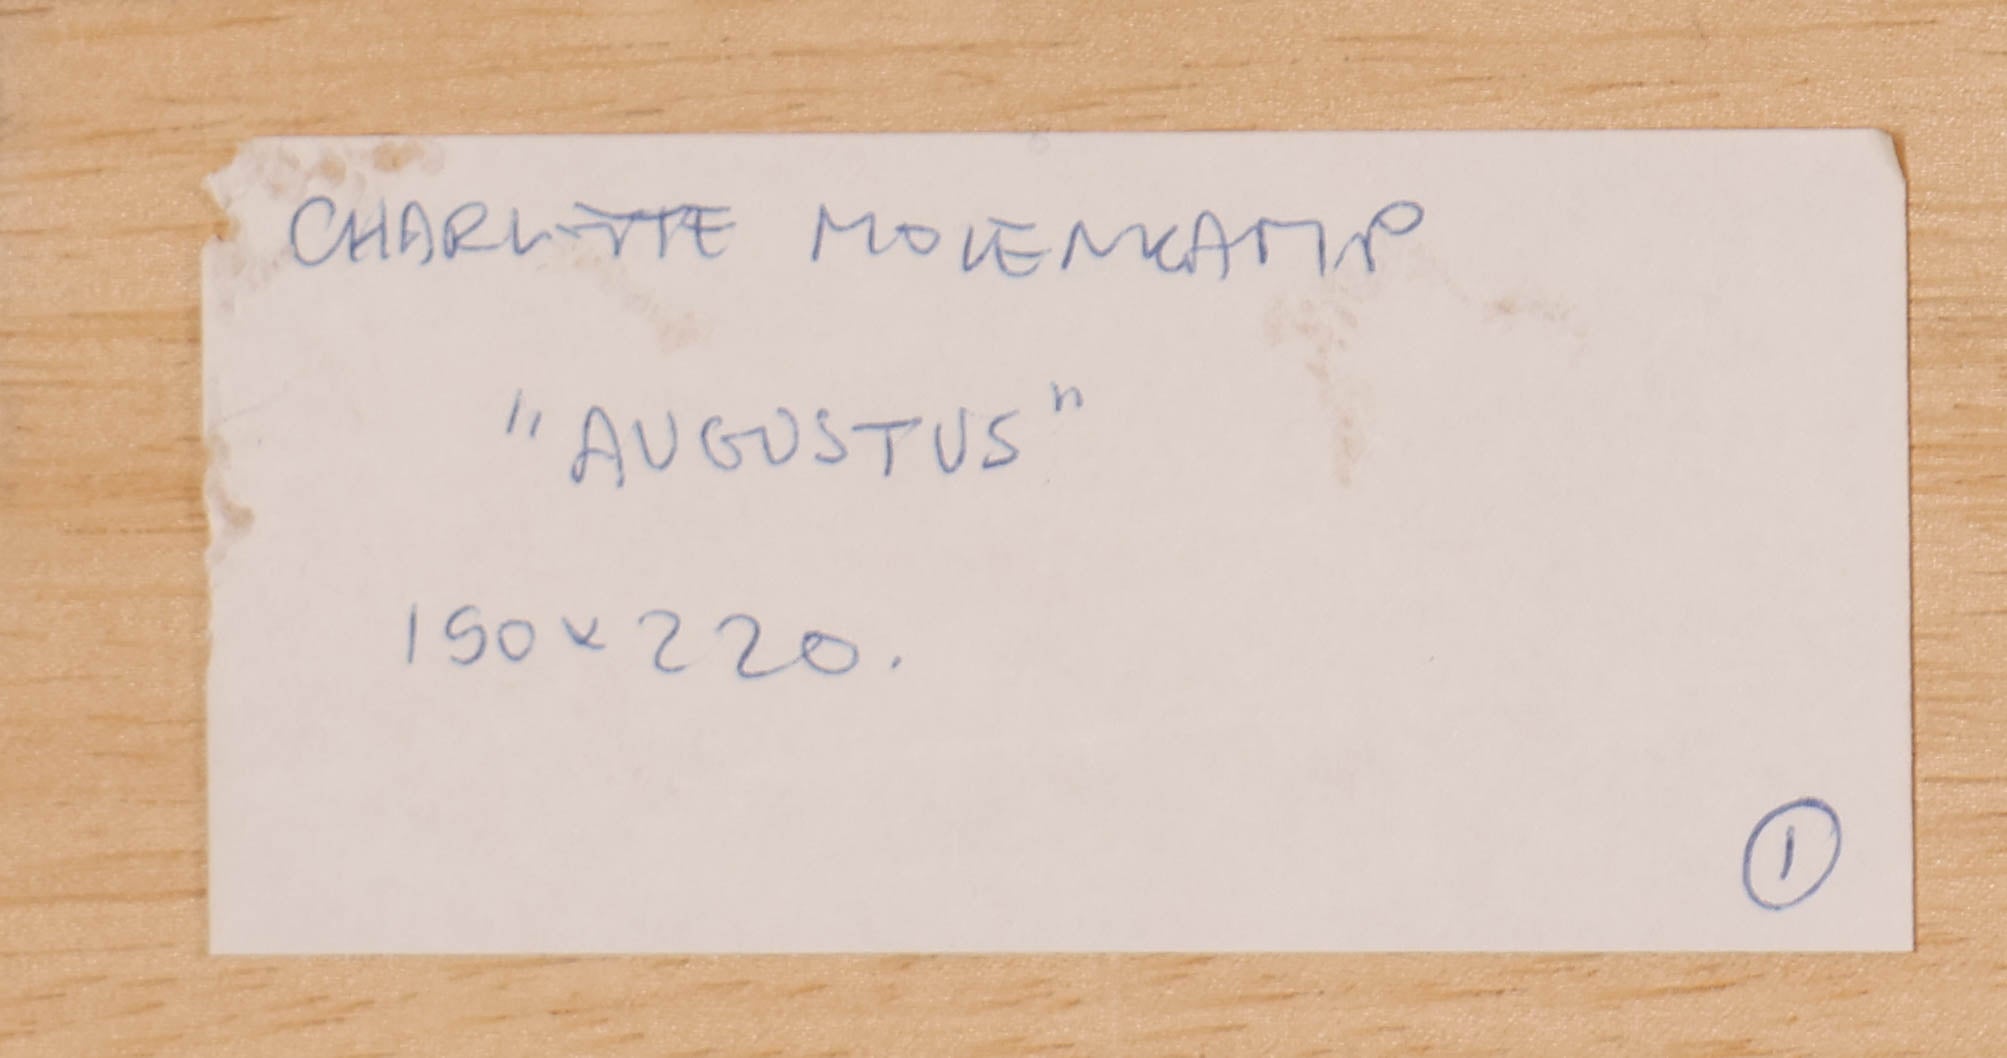 CHARLOTTE MOLENKAMP
"AUGUSTUS"
150 x 220.
1